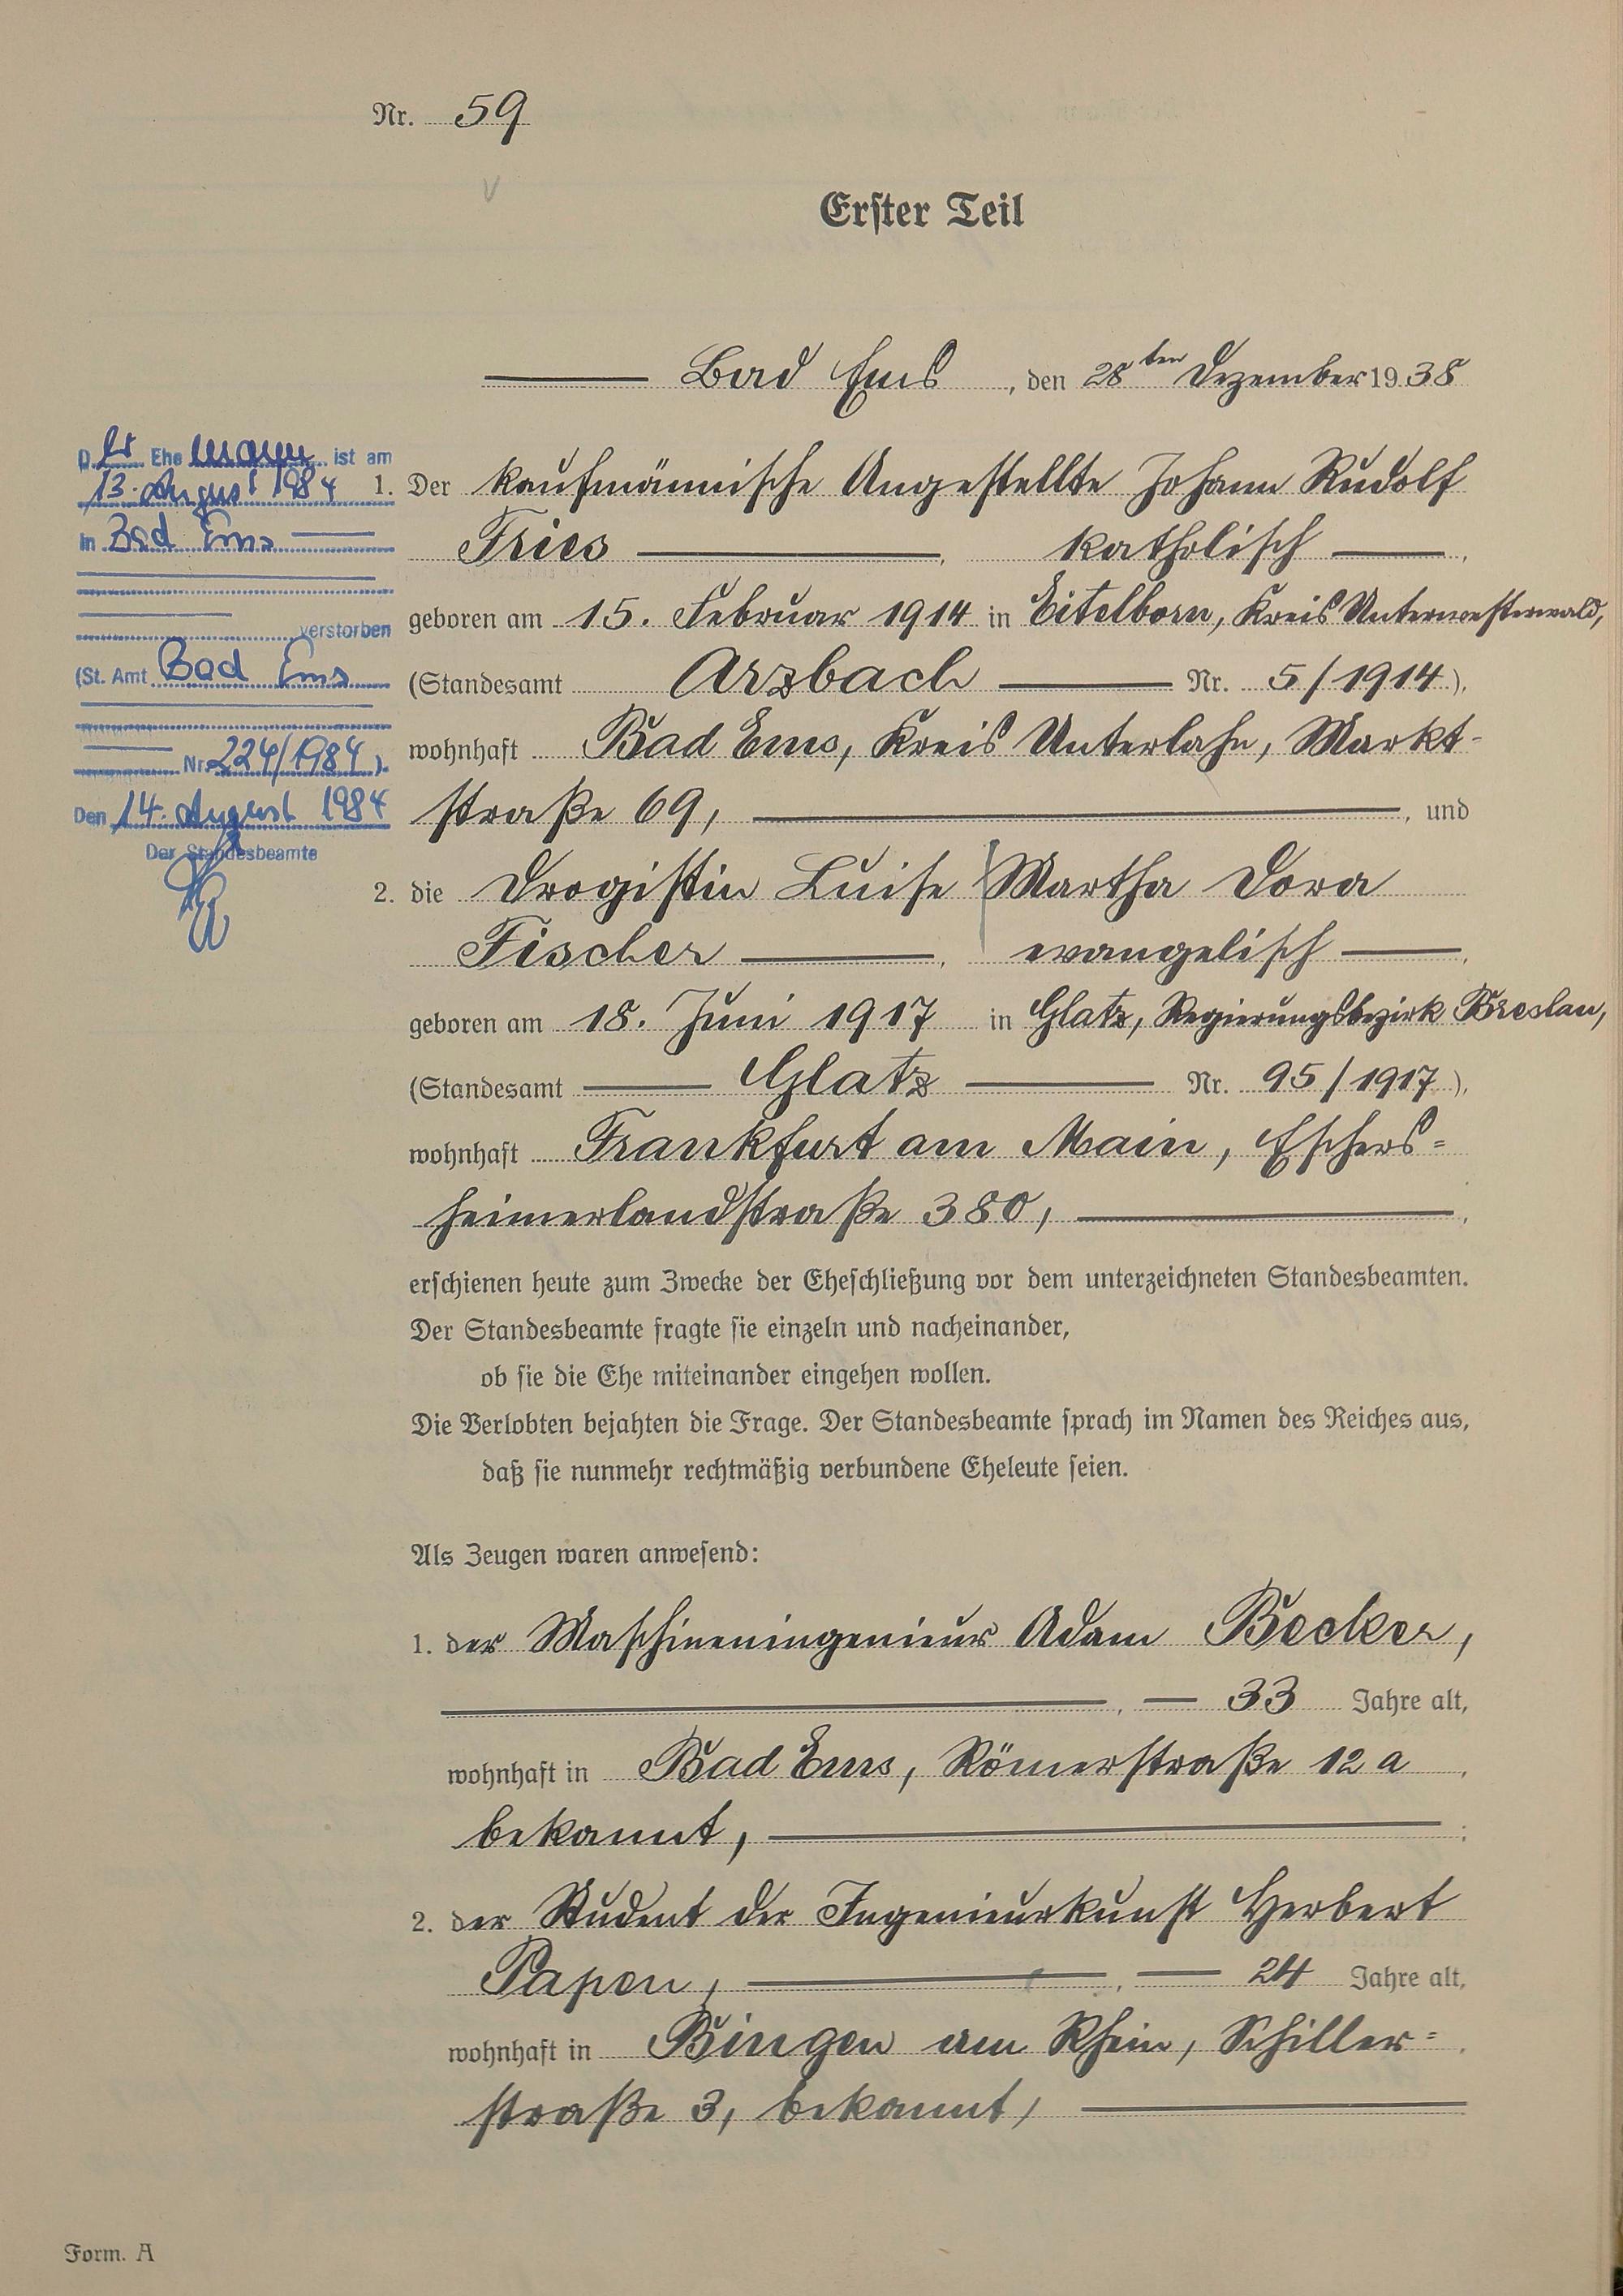 Nr. 59
Erster Teil
Bad Ems, den 28ten Dezember 1938
Der Ehemann ist am
13. August 1984
in Bad Ems
verstorben
(St. Amt Bad Ems
Nr. 224/1984).
Den 14. August 1984
Der Standesbeamte
1. Der kaufmännische Angestellte Johann Rudolf
Fries, katholisch,
geboren am 15. Februar 1914 in Eitelborn, Kreis Unterwesterwald,
(Standesamt Arzbach Nr. 5/1914),
wohnhaft Bad Ems, Kreis Unterlahn, Markt-
straße 69, , und
2. die Drogistin Luise Martha Dora
Fischer, evangelisch,
geboren am 18. Juni 1917 in Glatz, Regierungsbezirk Breslau,
(Standesamt Glatz Nr. 95/1917),
wohnhaft Frankfurt am Main, Eschers=
heimerlandstraße 380, ,
erschienen heute zum Zwecke der Eheschließung vor dem unterzeichneten Standesbeamten.
Der Standesbeamte fragte sie einzeln und nacheinander,
ob sie die Ehe miteinander eingehen wollen.
Die Verlobten bejahten die Frage. Der Standesbeamte sprach im Namen des Reiches aus,
daß sie nunmehr rechtmäßig verbundene Eheleute seien.
Als Zeugen waren anwesend:
1. der Maschineningenieur Adam Becker,
, 33 Jahre alt,
wohnhaft in Bad Ems, Römerstraße 12 a,
bekannt, ;
2. der Student der Ingenieurkunst Herbert
Papen, , 24 Jahre alt,
wohnhaft in Bingen am Rhein, Schiller=
straße 3, bekannt,
Form. A